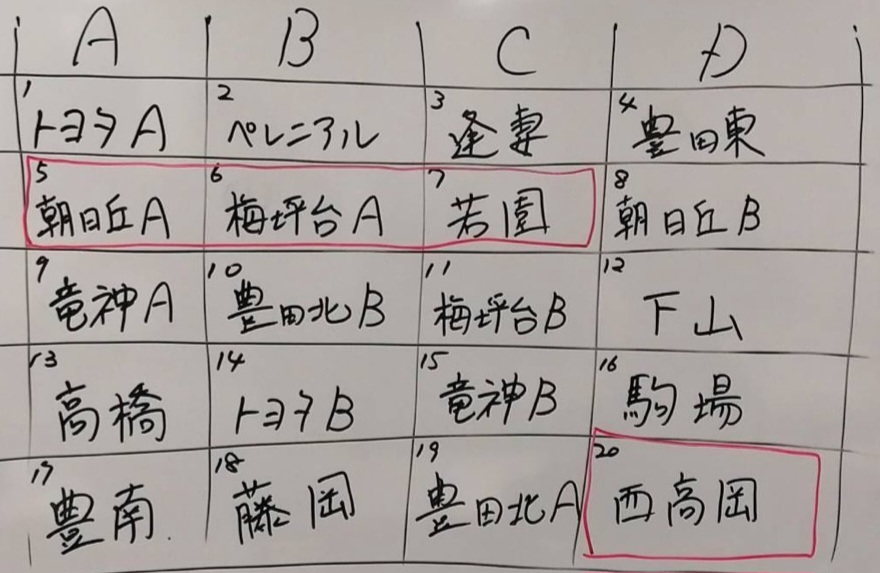 A B C D
1 トヨタA 2 ペレニアル 3 逢妻 4 豊田東
5 朝日丘A 6 梅坪台A 7 若園 8 朝日丘B
9 竜神A 10 豊田北B 11 梅坪台B 12 下山
13 高橋 14 トヨタB 15 竜神B 16 駒場
17 豊南 18 藤岡 19 豊田北A 20 西高岡